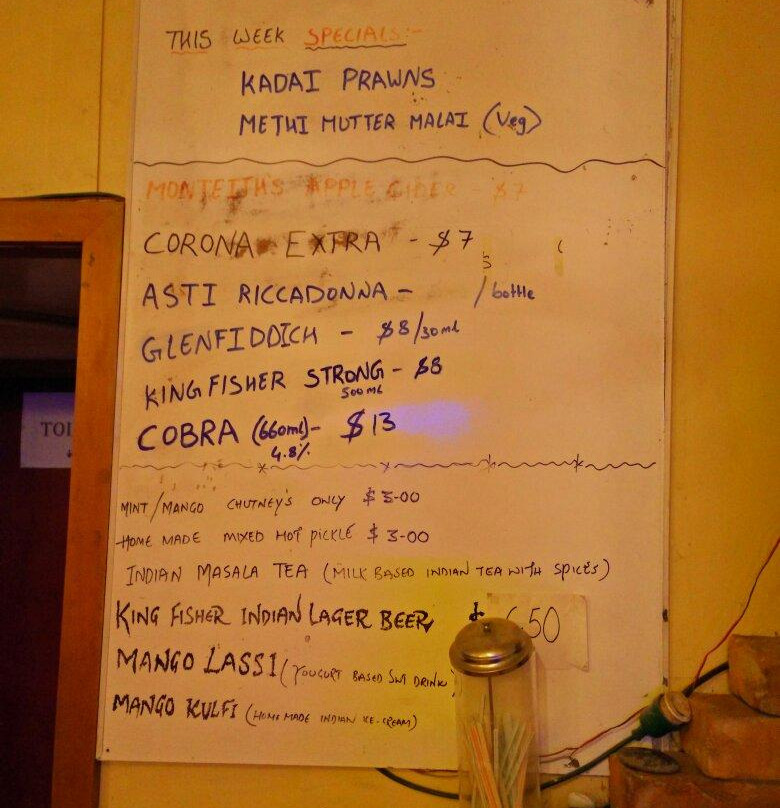 THIS WEEK SPECIALS:-
KADAI PRAWNS
METHI MUTTER MALAI (Veg)
MONTEITHS APPLE CIDER - $7
CORONA EXTRA - $7
ASTI RICCADONNA - /bottle
GLENFIDDICH - $8/30ml
KINGFISHER STRONG - $8
500ML
COBRA (660ml)- $13
4.8%
MINT/MANGO CHUTNEY'S ONLY $3-00
HOME MADE MIXED HOT PICKLE $3-00
INDIAN MASALA TEA (MILK BASED INDIAN TEA WITH SPICES)
KING FISHER INDIAN LAGER BEER $ 6.50
MANGO LASSI (YOUGURT BASED DRINK
MANGO KULFI (HOME MADE INDIAN ICE-CREAM)
TOI